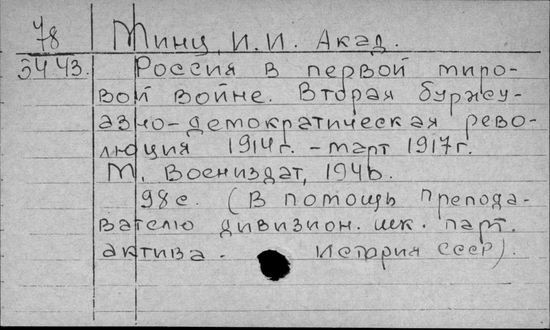 78 Минц, И. И. Акад.
5443. Россия в первой миро-
вой войне. Вторая буржу-
азно-демократическая рево-
люция 1914г. - март 1917г.
М. Воениздат, 1946.
98с. (В помощь препода-
вателю дивизион. шк. парт.
актива. История СССР).